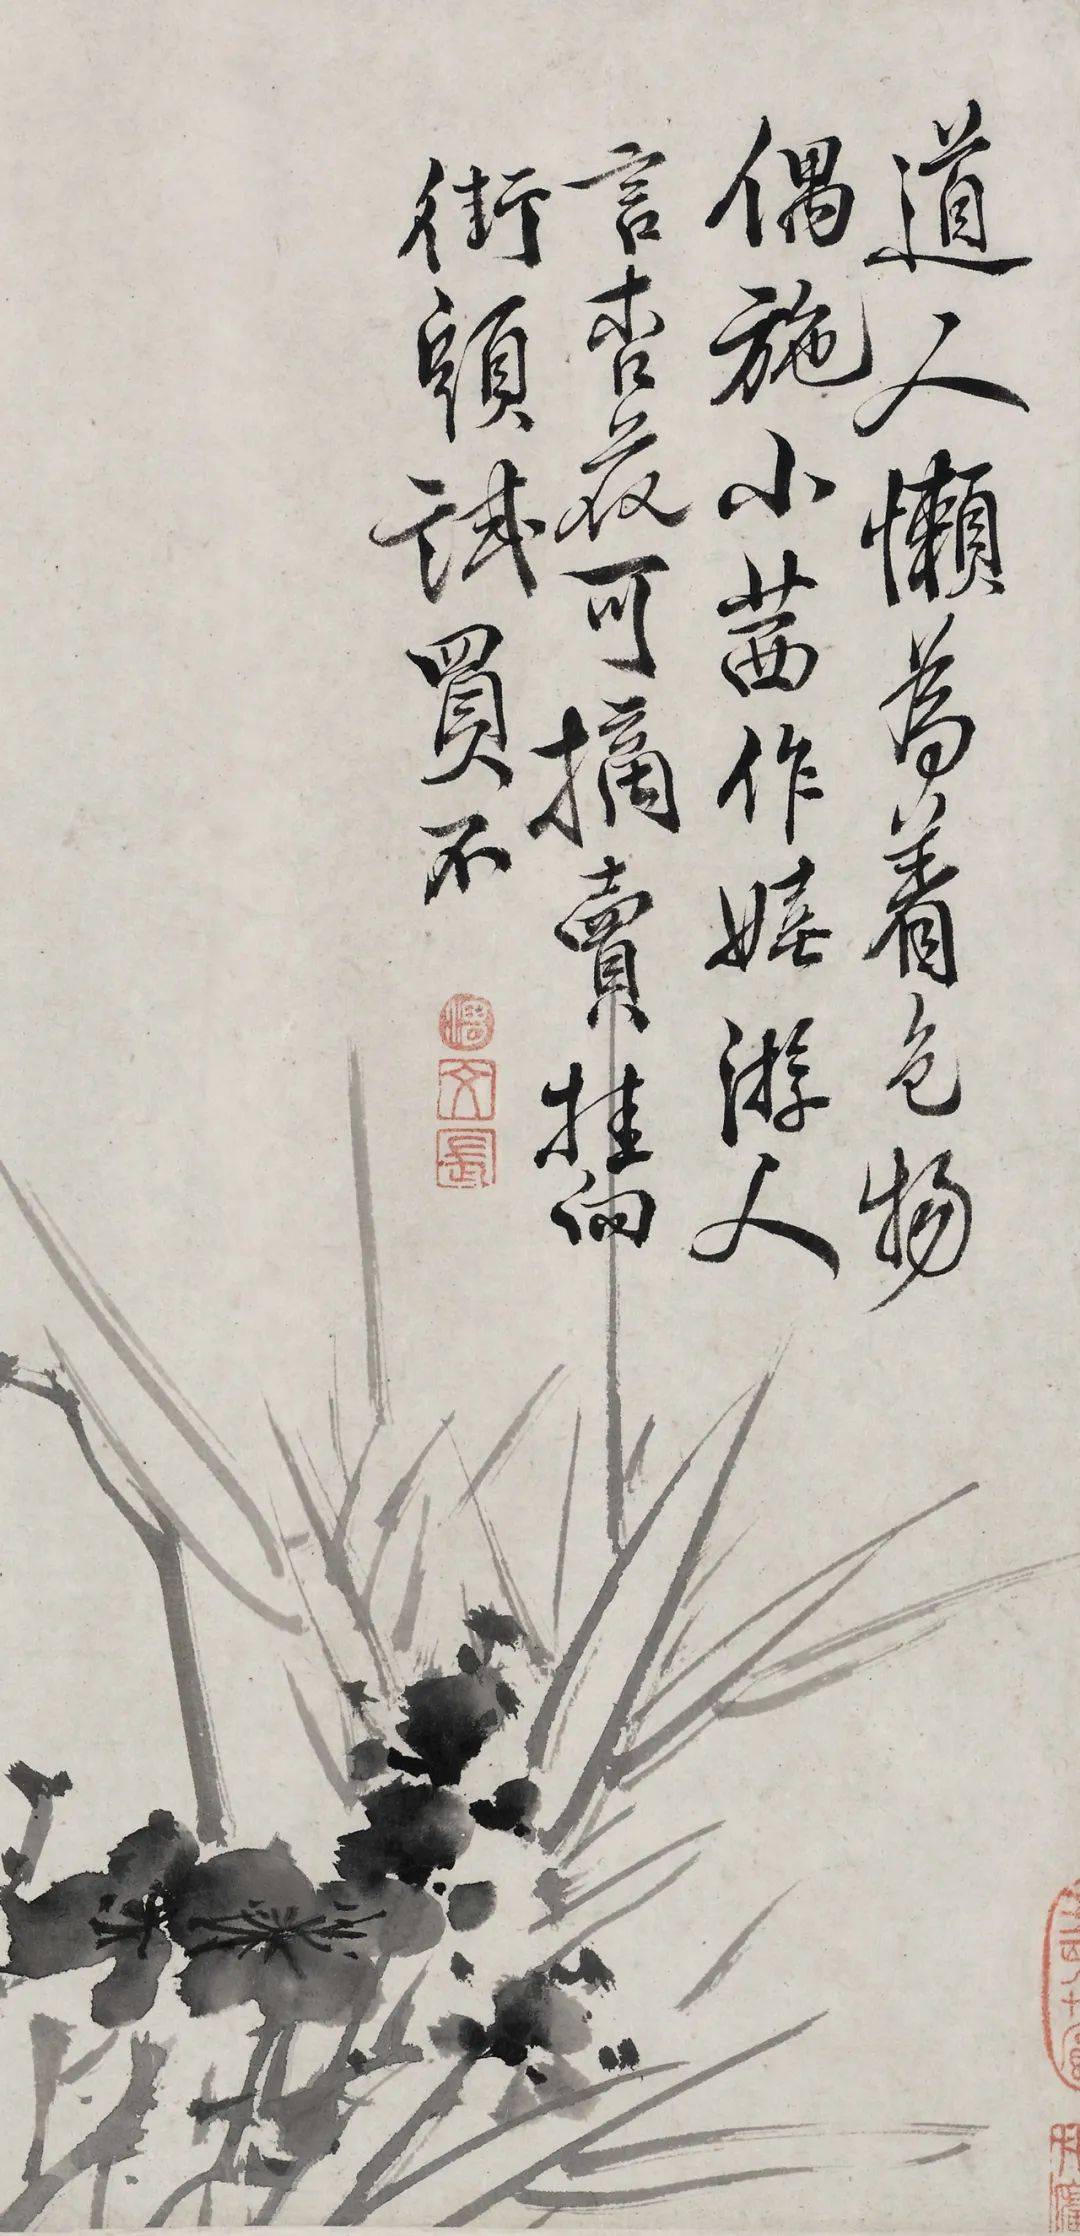 道人懶為着色物
偶施小茜作嬉游人
言杏花可摘賣挂向
街頭試買不
文長